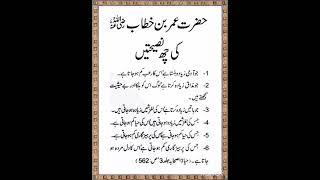 حضرت عمر بن خطاب رضی اللہ عنہ
کی چھ نصیحتیں
1- جو آدمی زیادہ ہنستا ہے اس کا رعب کم ہو جاتا ہے۔
2- جو مذاق زیادہ کرتا ہے لوگ اس کو ہلکا اور بے حیثیت
سمجھتے ہیں۔
3- جو باتیں زیادہ کرتا ہے اس کی لغزشیں زیادہ ہو جاتی ہیں۔
4- جس کی لغزشیں زیادہ ہو جاتی ہیں اس کی حیا کم ہو جاتی ہے۔
5- جس کی حیا کم ہو جاتی ہے اس کی پرہیزگاری کم ہو جاتی ہے۔
6- جس کی پرہیزگاری کم ہو جاتی ہے اس کا دل مردہ ہو
جاتا ہے۔ (حیاۃ الصحابہ جلد 3 ص 562)